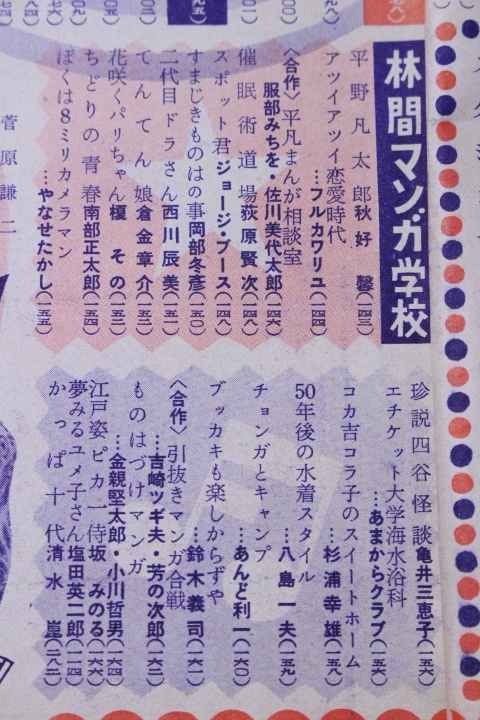 林間マンガ学校
平野凡太郎 秋好馨(一四三)
アツイアツイ恋愛時代
…フルカワリユ(一四四)
〈合作〉平凡まんが相談室
服部みちを・佐川美代太郎(一四六)
催眠術道場 荻原賢次(一四八)
スポット君 ジョージ・ブース(一四九)
すまじきものはの事 岡部冬彦(一五〇)
二代目ドラさん 西川辰美(一五一)
てんてん娘 倉金章介(一五二)
花咲くパリちゃん 榎その(一五三)
ちどりの青春 南部正太郎(一五四)
ぼくは8ミリカメラマン
…やなせたかし(一五五)
珍説四谷怪談 亀井三恵子(一五六)
エチケット大学海水浴科
…あまからクラブ(一五六)
コカ吉コラ子のスイートホーム
…杉浦幸雄(一五八)
50年後の水着スタイル
…八島一夫(一五九)
チョンガとキャンプ
…あんど利一(一六〇)
ブッカキも楽しからずや
…鈴木義司(一六一)
〈合作〉引抜きマンガ合戦
…吉崎ツギ夫・芳の次郎(一六二)
ものはづけマンガ
…金親堅太郎・小川哲男(一六四)
江戸姿ピカ一侍 坂みのる(一六六)
夢みるユメ子さん 塩田英二郎(一一四)
かっぱ十代 清水崑(一八二)
菅原謙二